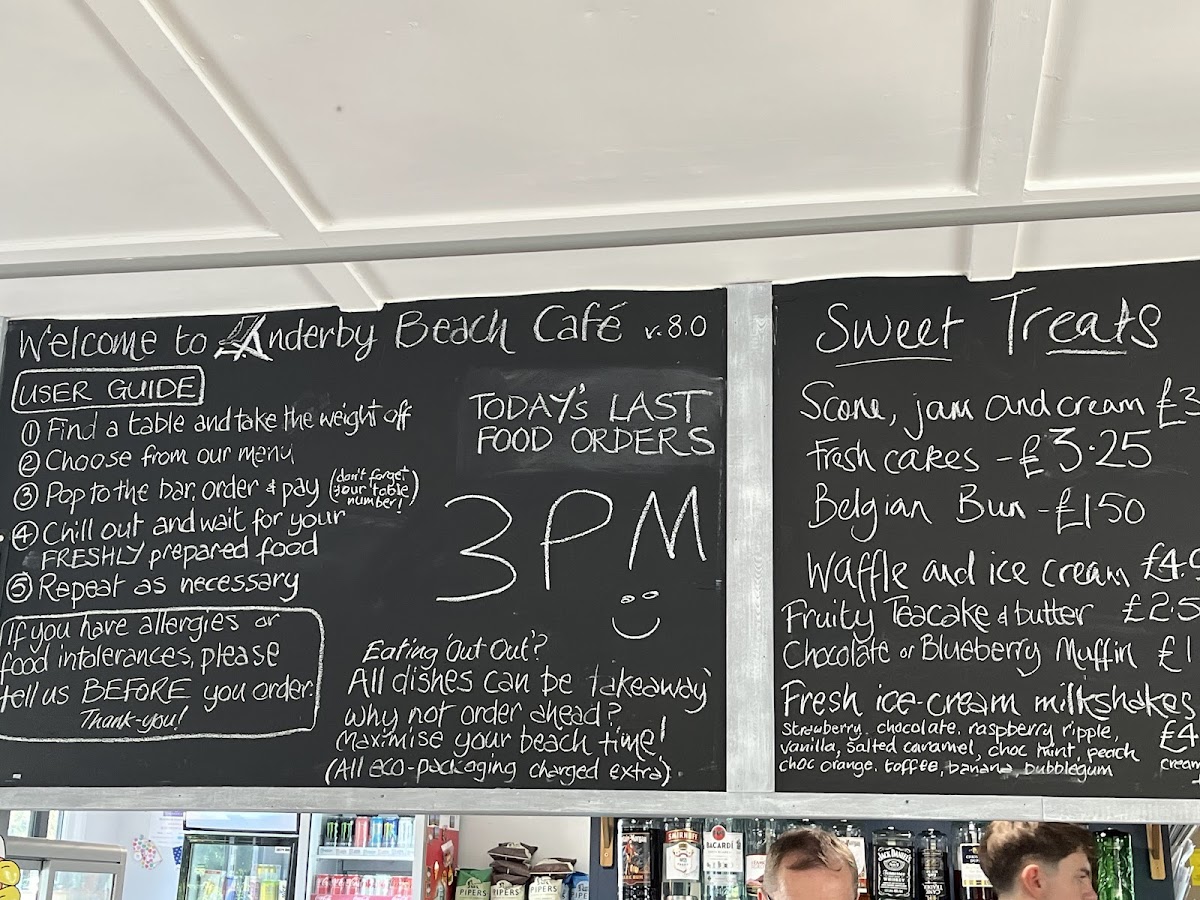 Welcome to Anderby Beach Café v.8.0
USER GUIDE
① Find a table and take the weight off
② Choose from our menu
③ Pop to the bar, order & pay (don't forget your table number!)
④ Chill out and wait for your
FRESHLY prepared food
⑤ Repeat as necessary
If you have allergies or
food intolerances, please
tell us BEFORE you order.
Thank-you!
TODAY'S LAST
FOOD ORDERS
3PM
Eating 'Out Out'?
All dishes can be takeaway
why not order ahead?
maximise your beach time!
(All eco-packaging charged extra)
Sweet Treats
Scone, jam and cream £3
Fresh cakes - £3.25
Belgian Bun - £1.50
Waffle and ice cream £4.
Fruity Teacake & butter £2.5
Chocolate or Blueberry Muffin £1
Fresh ice-cream milkshakes
Strawberry, chocolate, raspberry ripple, £4
vanilla, salted caramel, choc mint, peach
choc orange, toffee, banana, bubblegum
cream
PIPERS
PIPERS
PIPERS
SMIRNOFF
BACARDI
JACK DANIEL'S